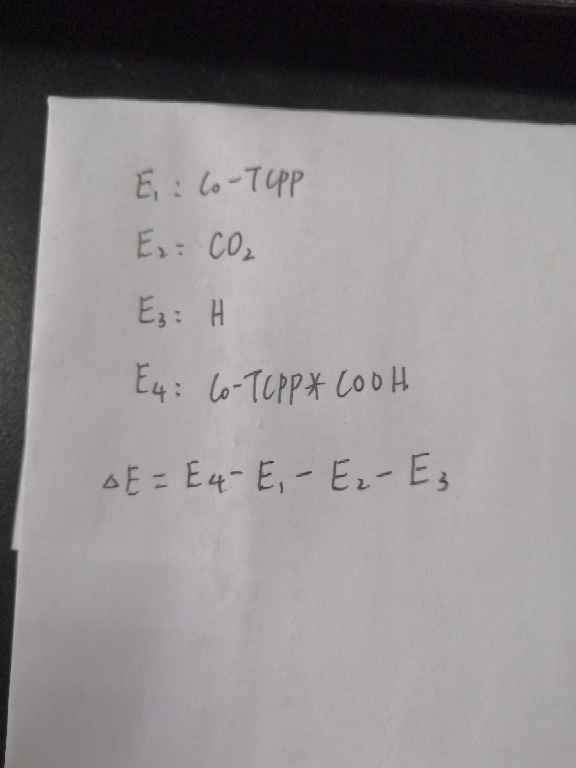 E₁: Co-TCPP
E₂: CO₂
E₃: H
E₄: Co-TCPP* COOH
△E = E₄ - E₁ - E₂ - E₃